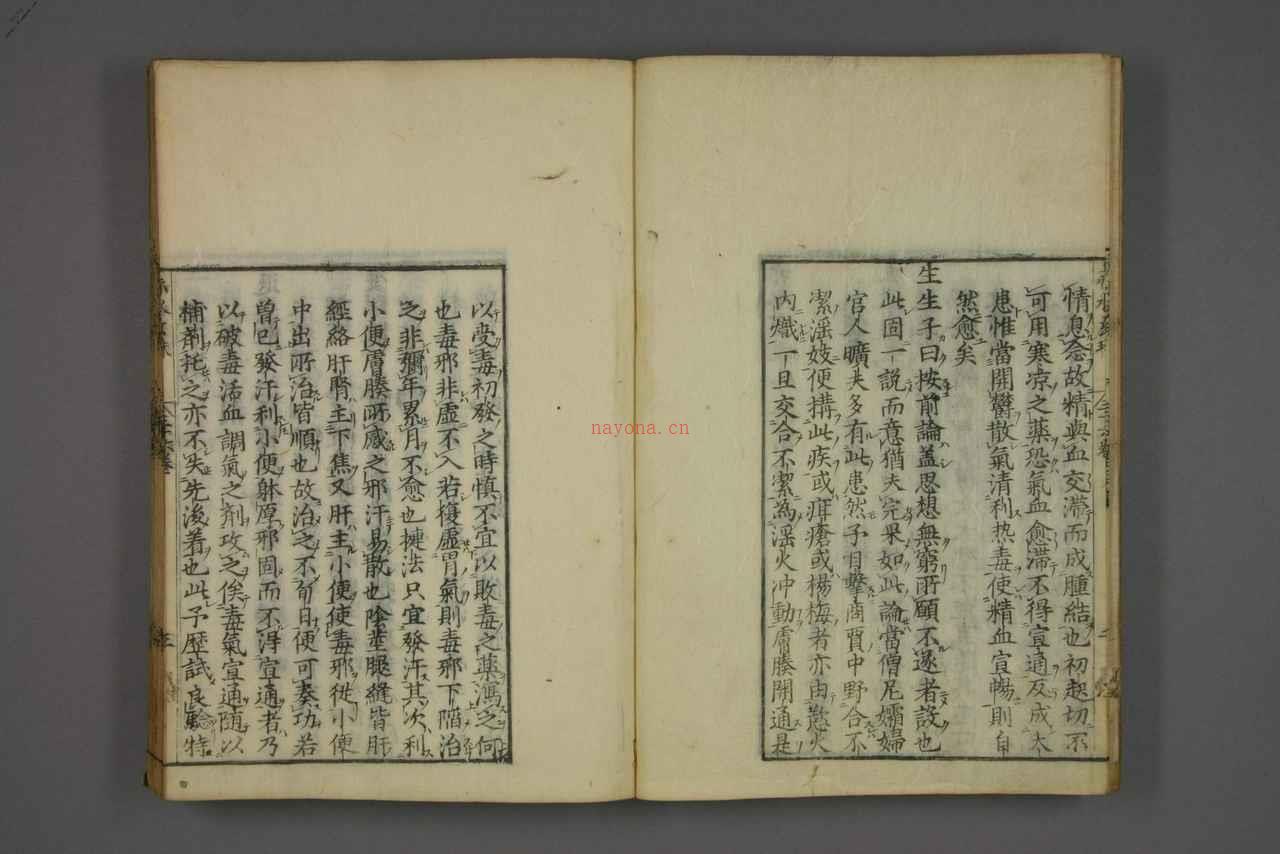 情息念故精與血交滯而成腫結也初起切不
可用寒凉之藥恐氣血愈滯不得宣通反成大
患惟當開鬱散氣清利热毒使精血宣暢則自
然愈矣
生生子曰按前論蓋思想無窮所願不遂者設也
此固一說而意猶夫完果如此論當僧尼孀婦
官人曠夫多有此患然予目擊商賈中野合不
潔淫妓便搆此疾或疳瘡或楊梅者亦由慾火
内熾一旦交合不潔為淫火冲動膚腠開通是
以受毒初發之時慎不宜以敗毒之藥瀉之何
也毒邪非虛不入若復虛胃氣則毒邪下陷治
之非彌年累月不愈也揵法只宜發汗其次利
小便膚腠所感之邪汗易散也陰莖腿縫皆肝
經絡肝腎主下焦又肝主小便使毒邪從小便
中出所治皆順也故治之不旬日便可奏功若
曾已發汗利小便躰厚邪固而不得宣通者乃
以破毒活血調氣之劑攻之俟毒氣宣通随以
補劑托之亦不失先後着也此予歷試良驗特
nayona.cn